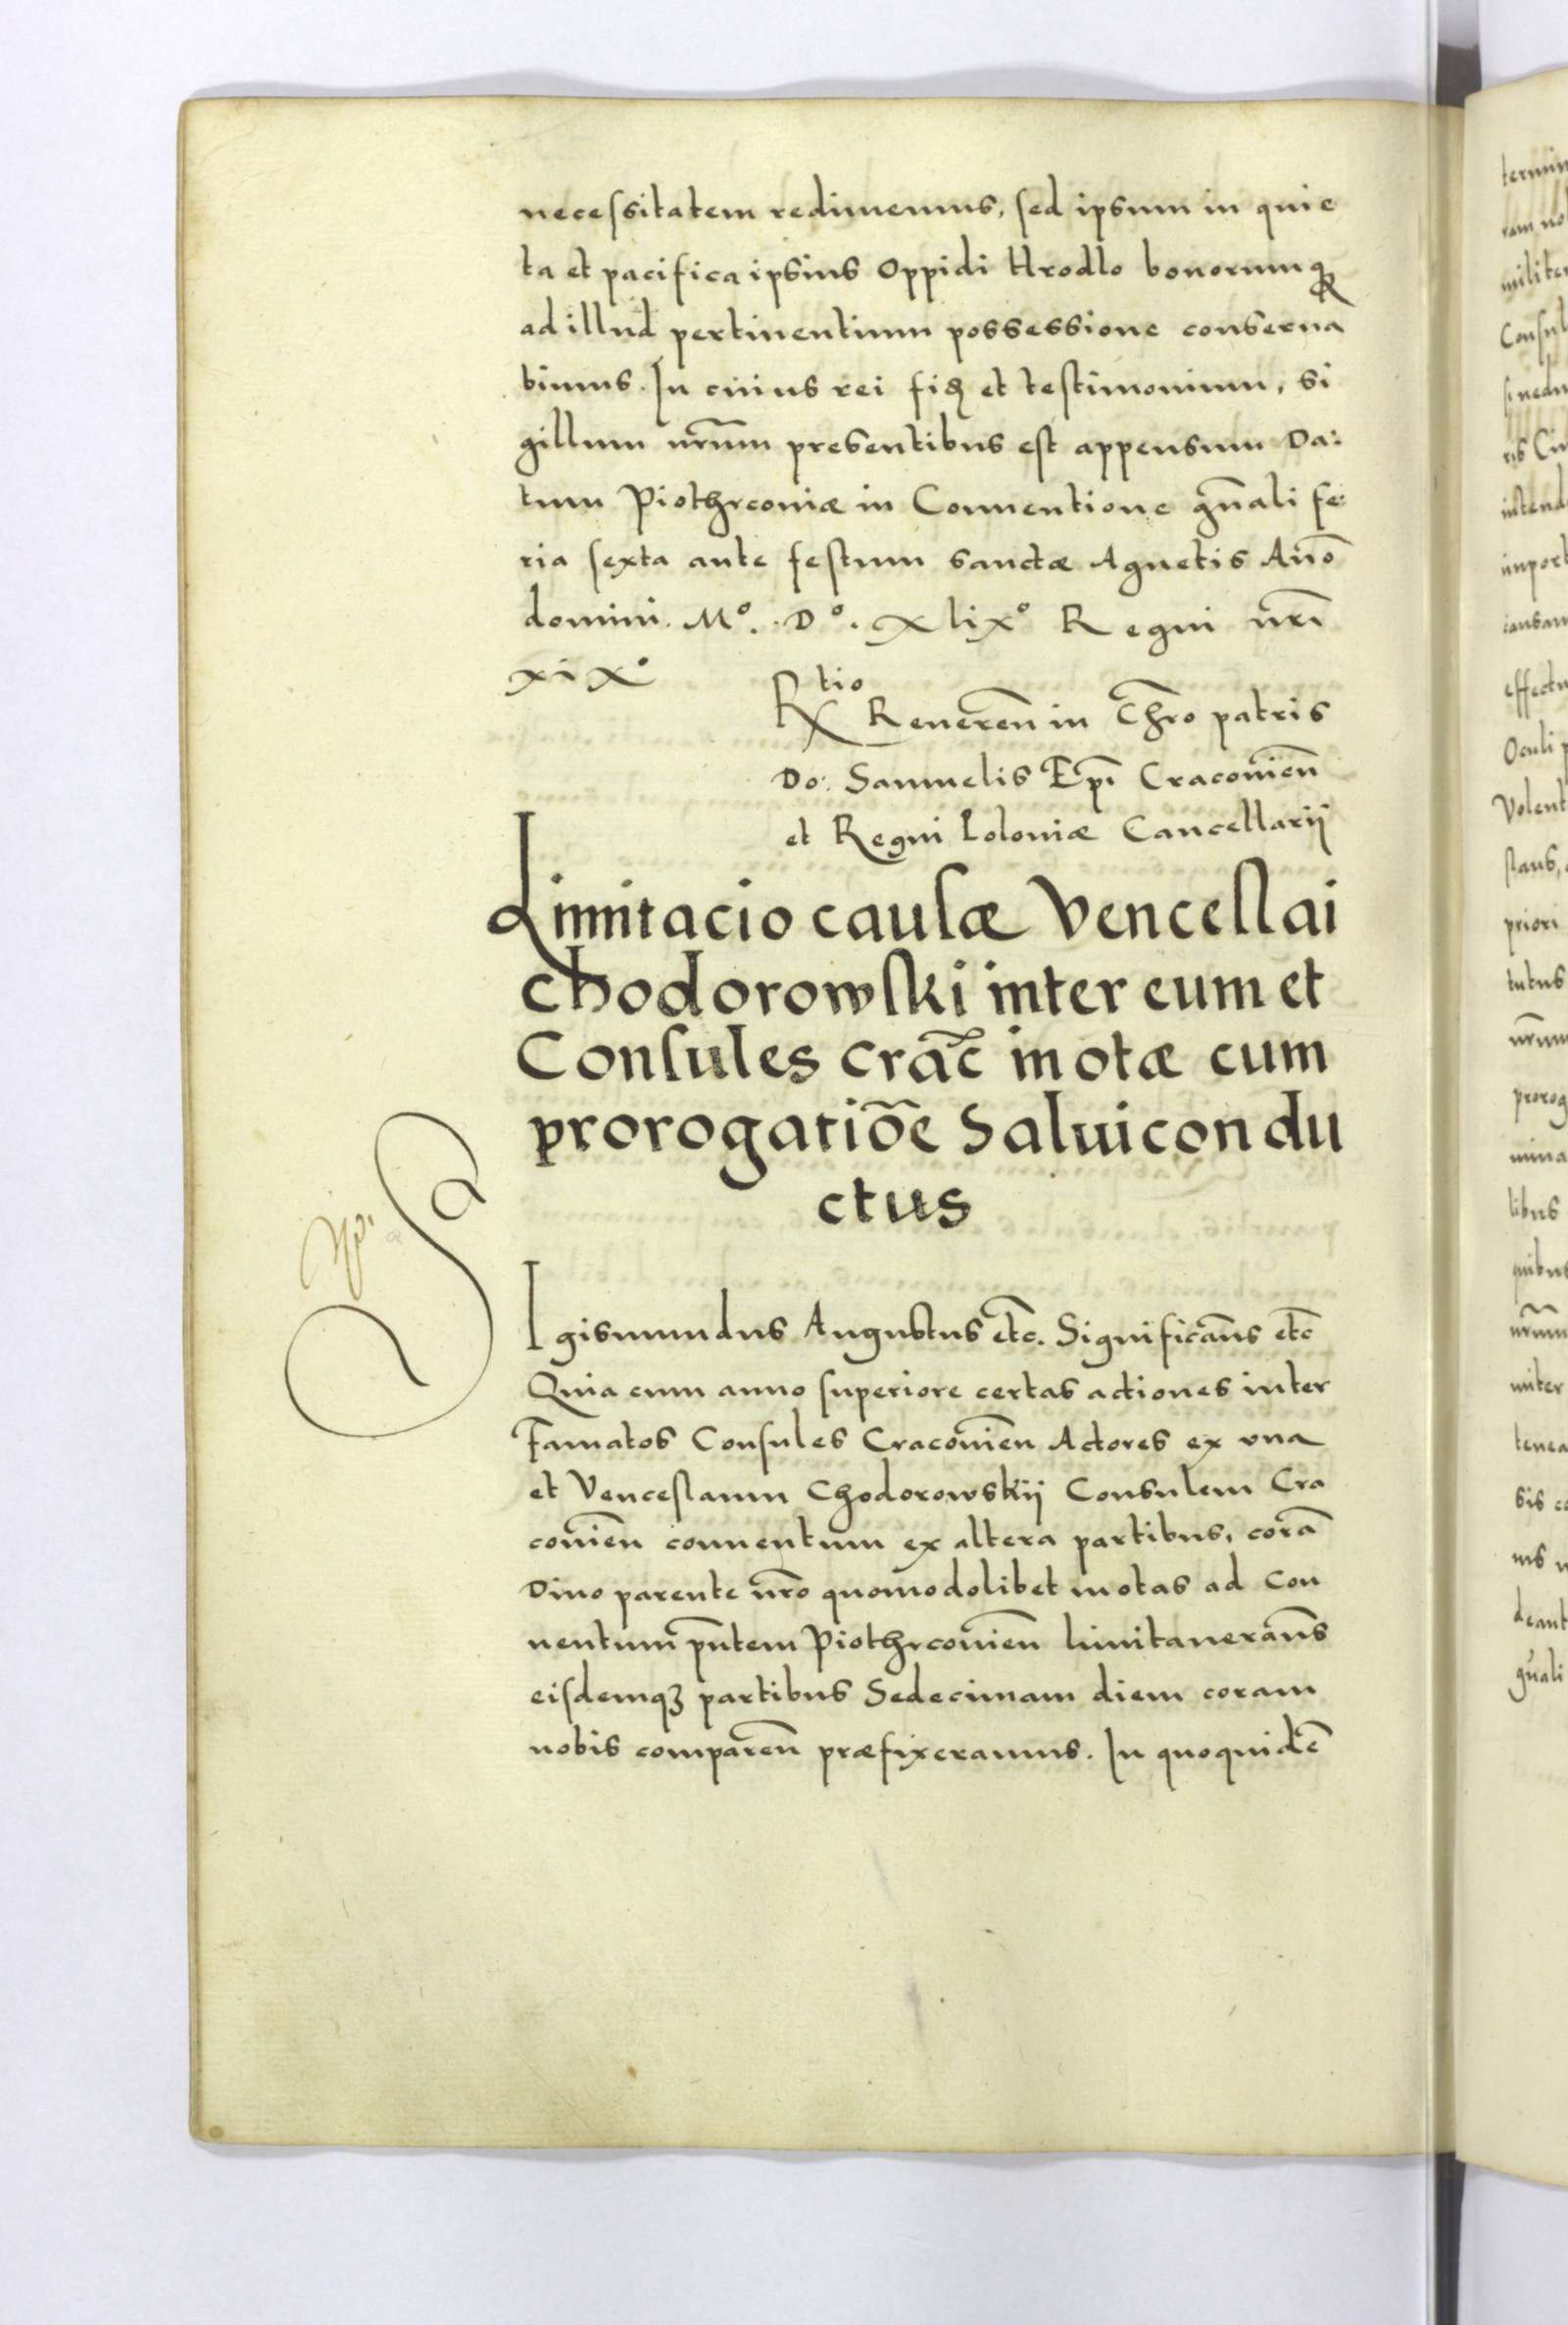 necessitatem redimemus, sed ipsum in quie
ta et pacifica ipsius Oppidi Hrodlo bonorumq;
ad illud pertinentium possessione conserua
bimus. In cuius rei fidẽ et testimonium, si
gillum nr̃um presentibus est appensum Da:
tum Piothrconiæ in Conuentione gñali fe:
ria sexta ante festum sanctæ Agnetis Año
domini. Mº. Dº. xlixº Regni nr̃i
xixº
Rtio Reueren̄ in Chr̃o patris
Do: Samuelis Ep̃i Cracouien̄
et Regni Poloniæ Cancellarij
Limitacio causæ Venceslai
Chodorowski inter eum et
Consules Crac̃ motæ cum
prorogatiõe Saluicondu
ctus
S
Igismundus Augustus etc̃. Significam̃s etc̃
Quia cum anno superiore certas actiones inter
Famatos Consules Cracouien̄ Actores ex vna
et Venceslaum Chodorowskij Consulem Cra
couien̄ conuentum ex altera partibus, corã
Diuo parente nr̃o quomodolibet motas ad Con
uentum pñtem Piothrcouien̄ limitaueram̃s
eisdemqꝫ partibus Sedecimam diem coram
nobis comparen̄ præfixeramus. In quoquidẽ
termin
militer
Consul
intend
import
effectu
Oculi
Volent
priori
tutus
nr̃um
prorog
libus
gñali